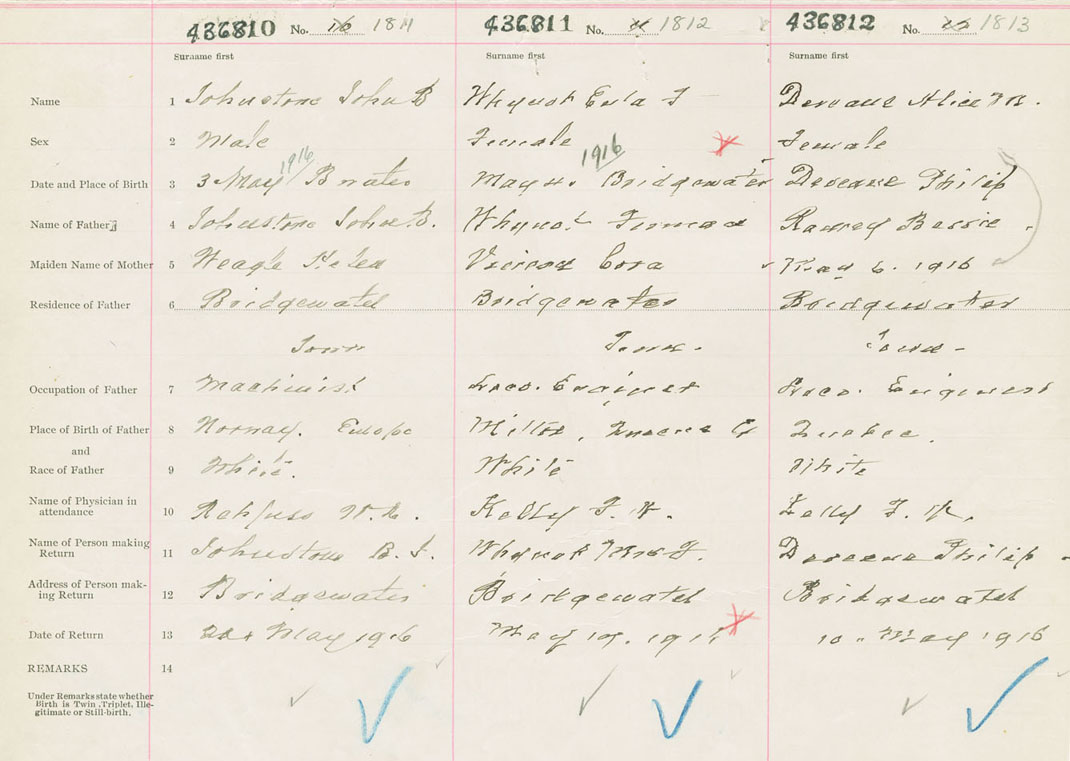 436810 No. 16 1811 436811 No. 1812 436812 No. 1813
Surname first Surname first Surname first
Name 1 Johnstone John B Whynot Eula F Deveaue Alice M.
Sex 2 Male Female Female
1916 1916
Date and Place of Birth 3 3 May Bridgewater Deveaue Philip
Name of Father 4 Johnstone John B. Whynot Ramey Bessie
Maiden Name of Mother 5 Weagle Helen Cora May 6. 1916
Residence of Father 6 Bridgewater Bridgewater Bridgewater
Town Town. Town -
Occupation of Father 7 Machinist Loco. Engineer Loco. Engineer
Place of Birth of Father 8 Norway. Europe Milton, Queens Co Quebec.
and
Race of Father 9 White. White White
Name of Physician in
attendance 10 Rehfuss W. N. Kelly F. W. Kelly F. W.
Name of Person making
Return 11 Johnstone B. J. Whynot Mrs F. Deveaue Philip -
Address of Person mak-
ing Return 12 Bridgewater Bridgewater Bridgewater
Date of Return 13 May 1916 May 17. 191 10 " May 1916
REMARKS 14
Under Remarks state whether
Birth is Twin, Triplet, Ille-
gitimate or Still-birth.